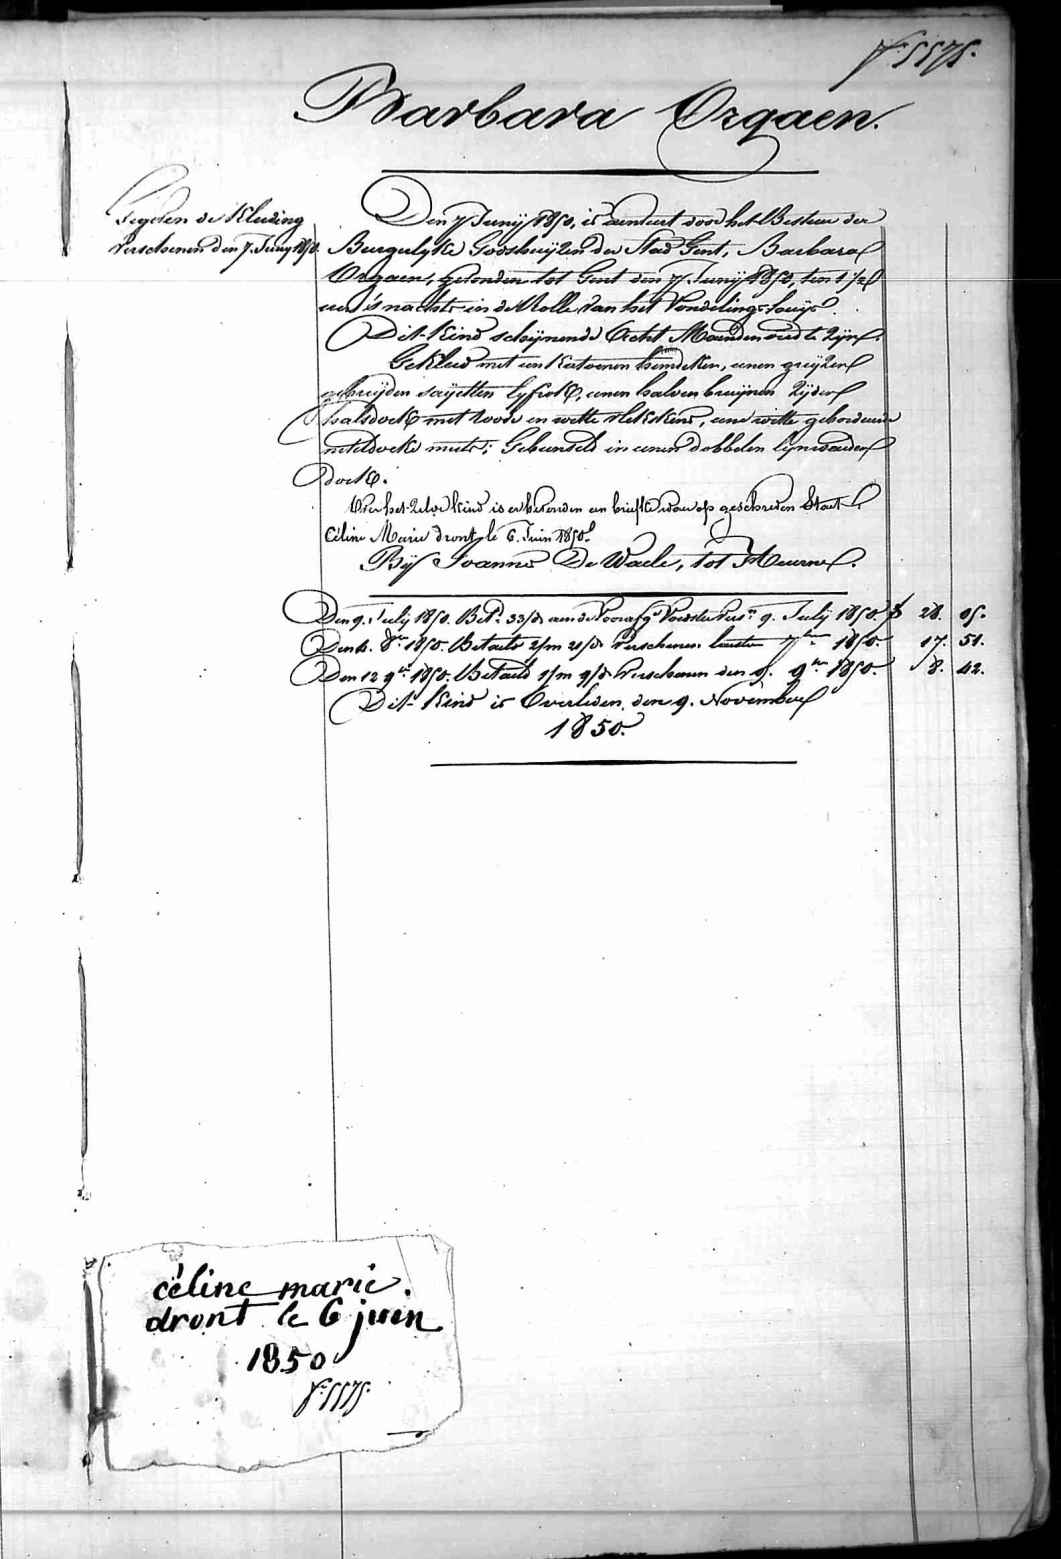 fº 5575.
Barbara Orgaen.
Gegeven de Kleeding
Verschenen den 7. Juny 1850.
Den 7 Junij 1850, is aenveert door het Bestuer der
Burgelyke Godshuijzen der Stad Gent, Barbara
Orgaen, gevonden tot Gent den 7 Junij 1850, ten 1 1/2
ure 's nachts in de Rolle van het Vondelingshuijs.
Dit Kind schijnende Acht Maenden oud te Zijn.
Gekleed met een Katoenen hemdeken, eenen grijzen
gebreijden saijetten lyfrok, eenen halven bruijnen Zijden
halsdoek met roode en witte vlekskens, eene witte geboorduerde
neteldoeke muts; Gebunseld in eenen dobbelen lynwaeden
doek.
Over het Zelve Kind is er bevonden een briefke waer op geschreven Staet
Céline Marie dront le 6. Juin 1850.
Bij Joannes De Waele, tot Meirne.
Den 9. July 1850. Betd. 33/d aen de Voorafge Voedster Versn. 9. July 1850. f 28. 05.
Den 4. 8re 1850. Betaeld 2/m 21/d Verschenen 7bre 1850. 17. 51.
Den 12 9re 1850. Betaeld 1/m 9/d Verschenen den 9. 9re 1850. 8. 42.
Dit Kind is Overleden den 9. November
1850.
céline marie.
dront le 6 juin
1850
fº 5575.